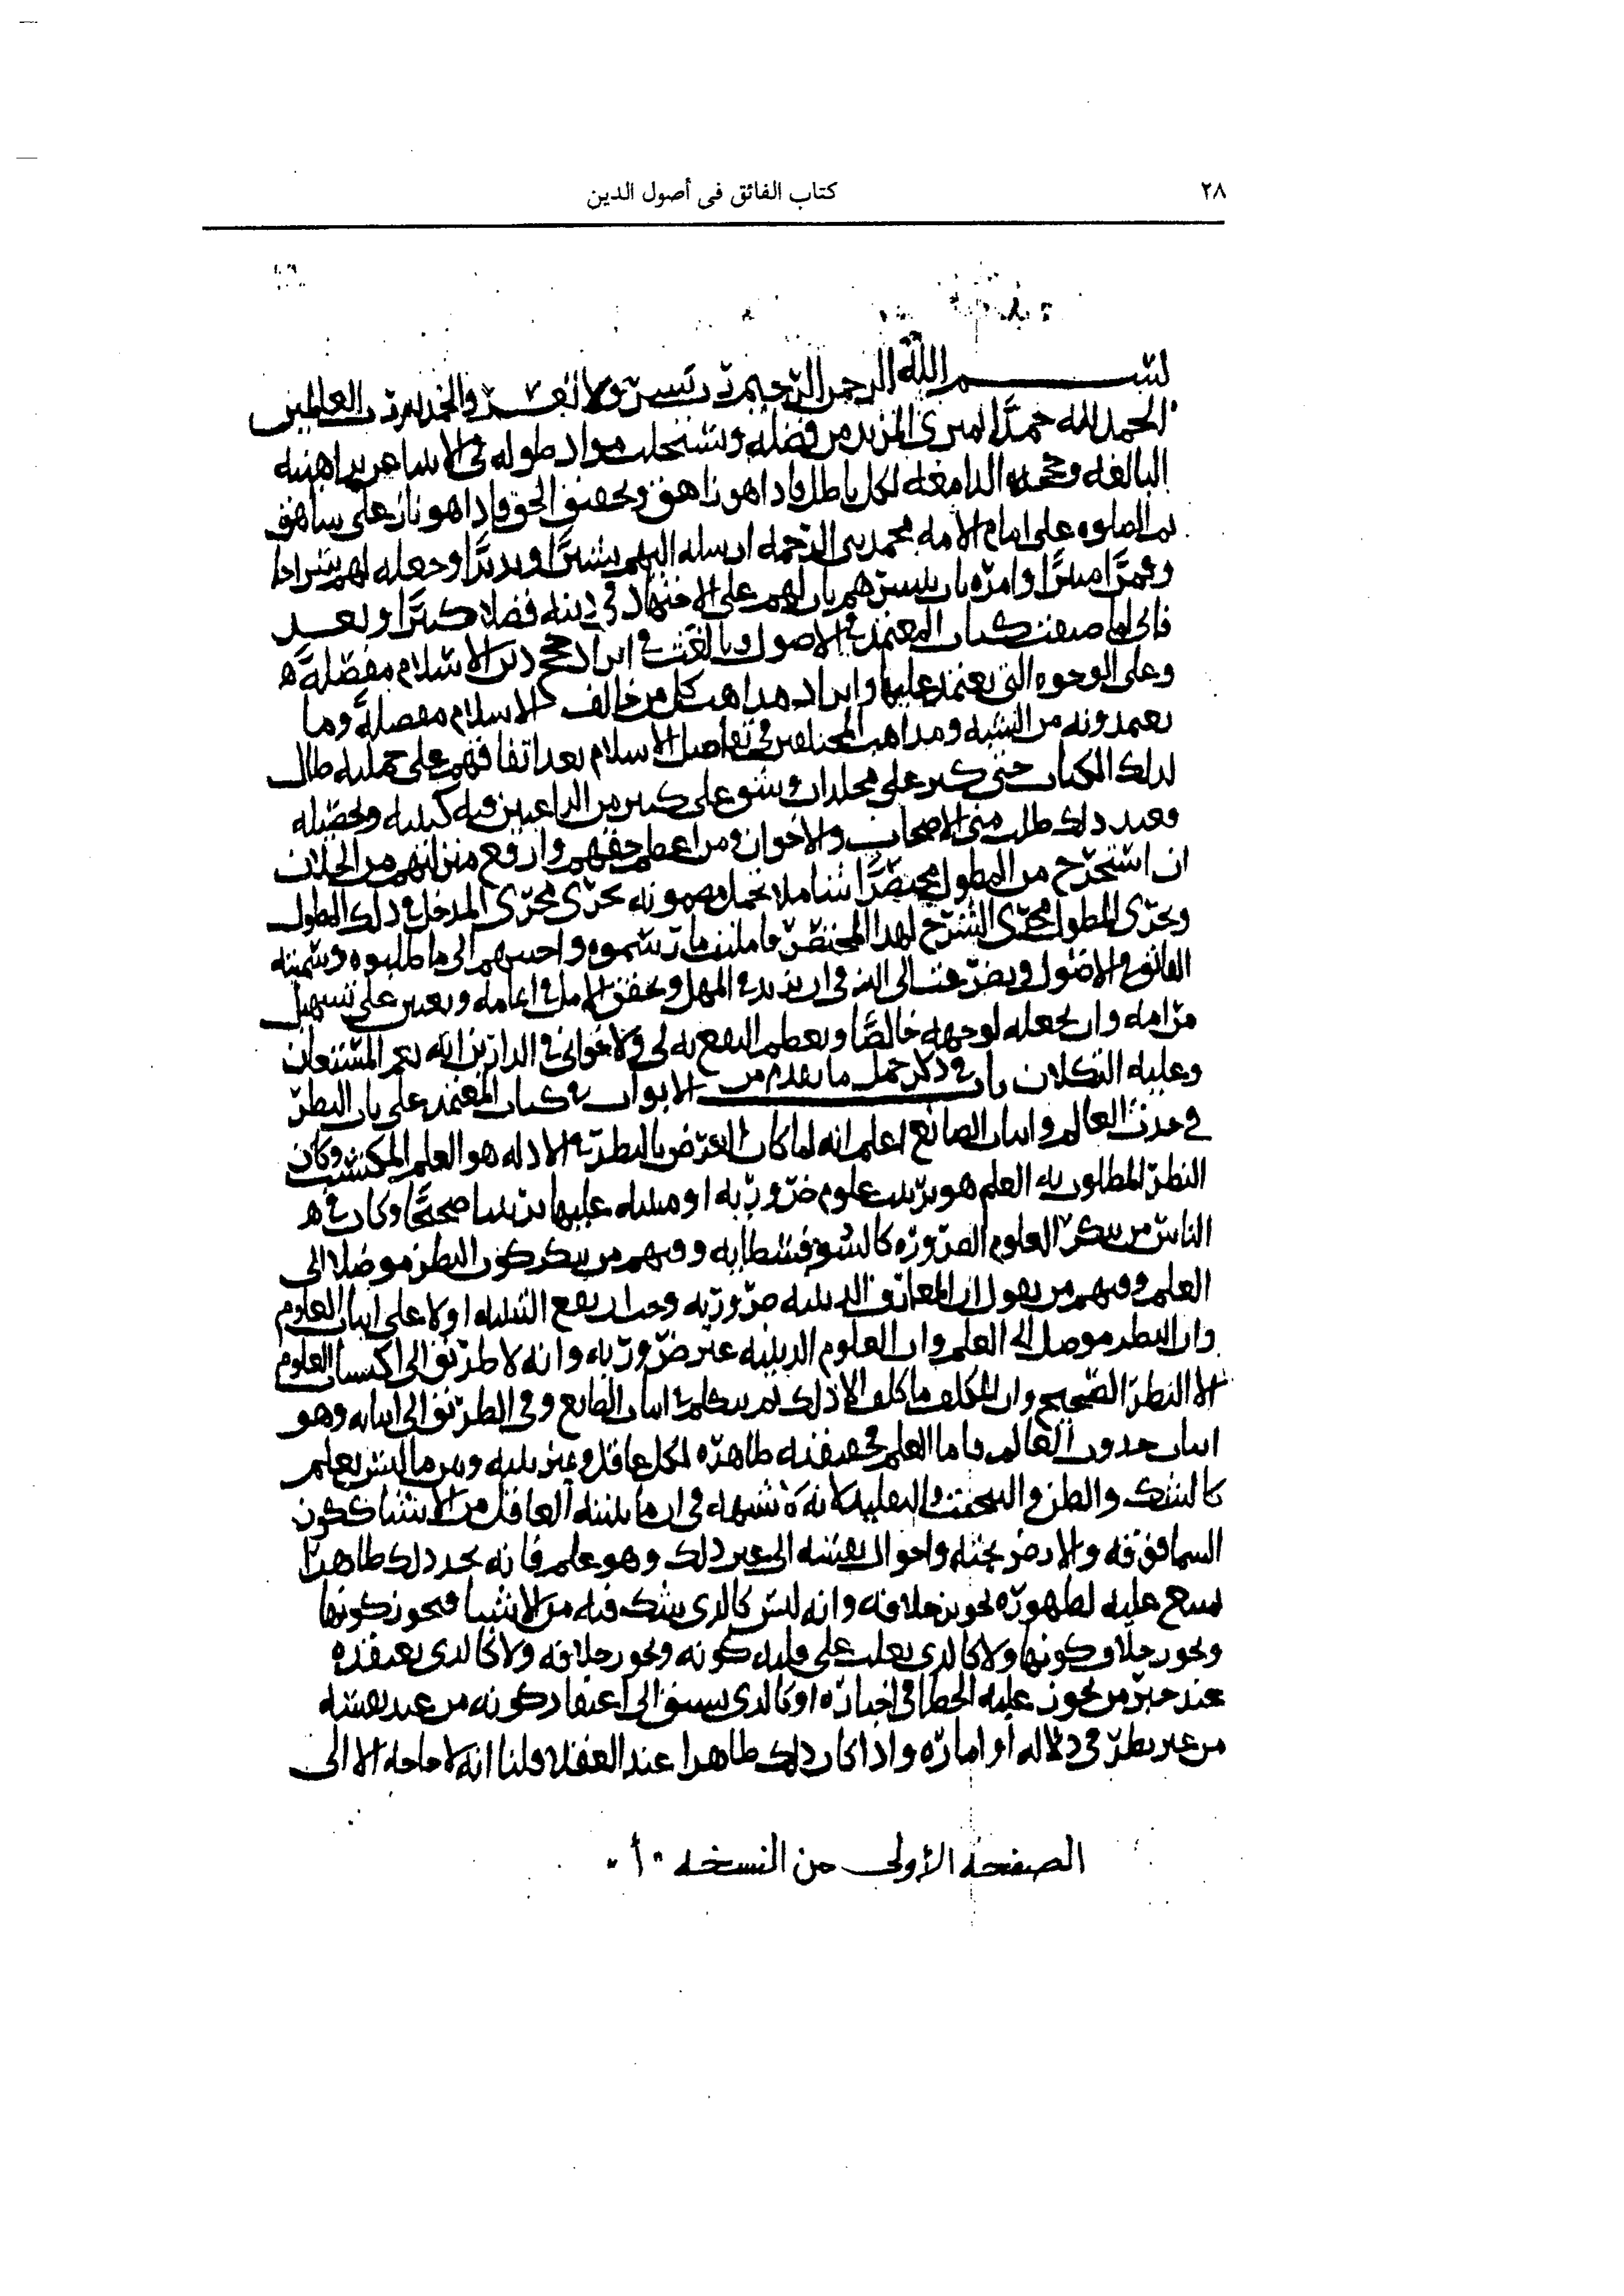 ٢٨
كتاب الفائق فى أصول الدين
بسم الله الرحمن الرحيم رب يسر ولا تعسر والحمد لله رب العالمين
الحمد لله حمدًا المزيد من فضله مواد طوله
البالغة وحججه الدامغة لكل باطل فاذا هو زاهق وتحقيق الحق فاذا هو على ساهق
ثم الصلوة على امام الامة محمد نبى الرحمة ارسله اليهم بشيرًا ونذيرًا وجعله لهم سراجا
وقمرًا منيرًا وامره بان يبشرهم بان لهم على الاجتهاد فى دينه فضلا كبيرًا وبعد
فانى لما صنفت كتاب المعتمد فى الاصول وبالغت فى ايراد حجج دين الاسلام مفصلة
وعلى الوجوه التى يعتمد عليها وايراد مذاهب كل من خالف الاسلام مفصلة وما
يعتمدونه من الشبه ومذاهب المختلفين فى تفاصيل الاسلام بعد اتفاقهم على جمليه طال
لذلك الكتاب حتى كبر على مجلدات وشق على كثير من الراغبين فيه كتبته وتحصيله
فعند ذلك طلب منى الاصحاب والاخوان ومن اعظم حقهم وارفع منزلتهم من الخلان
ان استخرج من المطول مختصرًا شاملا لجمل مضمونه يجرى مجرى المدخل فى ذلك المطول
ويجرى المطول مجرى الشرح لهذا المختصر فاملت ما رسموه واجبتهم الى ما طلبوه وسميته
الفائق فى الاصول وتضرعت الى الله فى ان يزيد فى المهل ويحقق الامل فى اتمامه ويعين على تسهيل
مرامه وان يجعله لوجهه خالصًا ويعظم النفع به لى ولاخوانى فى الدارين انه نعم المستعان
وعليه التكلان باب فى ذكر جمل ما يقدم من الابواب فى كتاب المعتمد على باب النظر
فى حدث العالم واثبات الصانع اعلم انه لما كان الغرض بالنظر فى الادلة هو العلم المكتسب وكان
النظر المطلوب به العلم هو ترتيب علوم ضرورية او مبنية عليها ترتيبا صحيحًا وكان فى
الناس من ينكر العلوم الضرورة كالسوفسطائية وفيهم من ينكر كون النظر موصلا الى
العلم وفيهم من يقول ان المعارف الدينية ضرورية وجب ان يقع التنبيه اولا على اثبات العلوم
وان النظر موصل الى العلم وان العلوم الدينية غير ضرورية وانه لا طريق الى اكتساب العلوم
الا النظر الصحيح وان المكلف ما كلف الا ذلك ثم يتكلم فى اثبات الصانع وفى الطريق الى اثباته وهو
اثبات حدوث العالم فاما العلم فحقيقته ظاهرة لكل عاقل وميز بينه وبين ما ليس بعلم
كالشك والظن والتبخيت والتقليد لانه لا شبهة فى ان ما يتبينه العاقل من الاشياء ككون
السما فوقه والارض تحته واحوال نفسه الى غير ذلك وهو علم فانه يجد ذلك ظاهرا
يمتنع عليه لظهوره تجويز خلافه وانه ليس كالذى يشك فيه من الاشيا فيجوز كونها
ويجوز خلاف كونها ولا كالذى يغلب على قلبه كونه ويجوز خلافه ولا كالذى يعتقده
عند خبر من يجوز عليه الخطا فى اخباره او كالذى يسبق الى اعتقاد كونه من عند نفسه
من غير نظر فى دلالة أو امارة واذا كان ذلك ظاهرا عند العقلا قلنا انه لا حاجة الا الى
الصفحة الأولى من النسخة "أ"